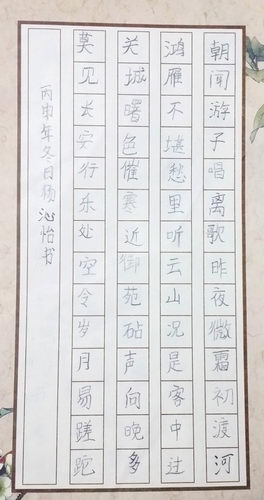 朝闻游子唱离歌昨夜微霜初渡河
鸿雁不堪愁里听云山况是客中过
关城曙色催寒近御苑砧声向晚多
莫见长安行乐处空令岁月易蹉跎
丙申年冬日杨沁怡书